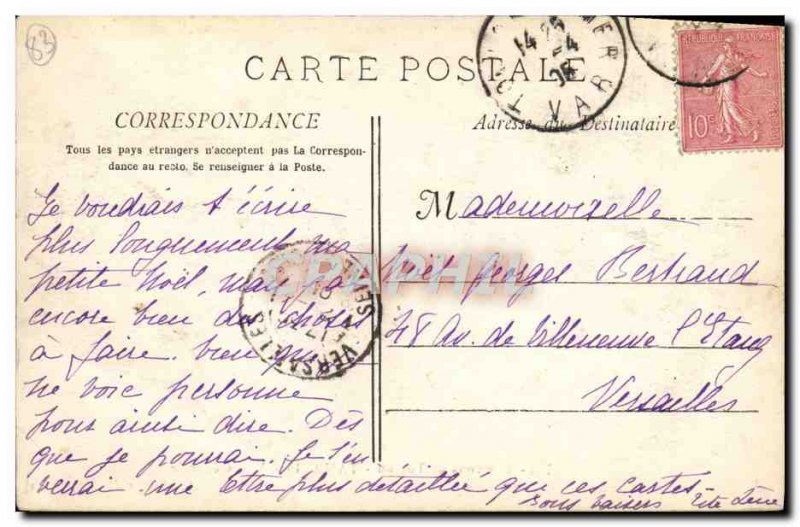 83
CARTE POSTALE
CORRESPONDANCE
Tous les pays etrangers n'acceptent pas La Correspon-
dance au recto. Se renseigner à la Poste.
Je voudrais t'écrire
plus longuement ma
petite Noël, mais j'ai
encore bien des choses
à faire, bien que
ne voie personne
pour ainsi dire. Dès
que je pourrai, Je t'en
verrai une lettre plus détaillée que ces cartes.
bons baisers
Adresse du Destinataire
Mademoiselle
Noël Georges Bertrand
28 Av. de Villeneuve l'Etang
Versailles
REPUBLIQUE FRANÇAISE
10c
14
VAR
VERSAILLES
CRAPHIL